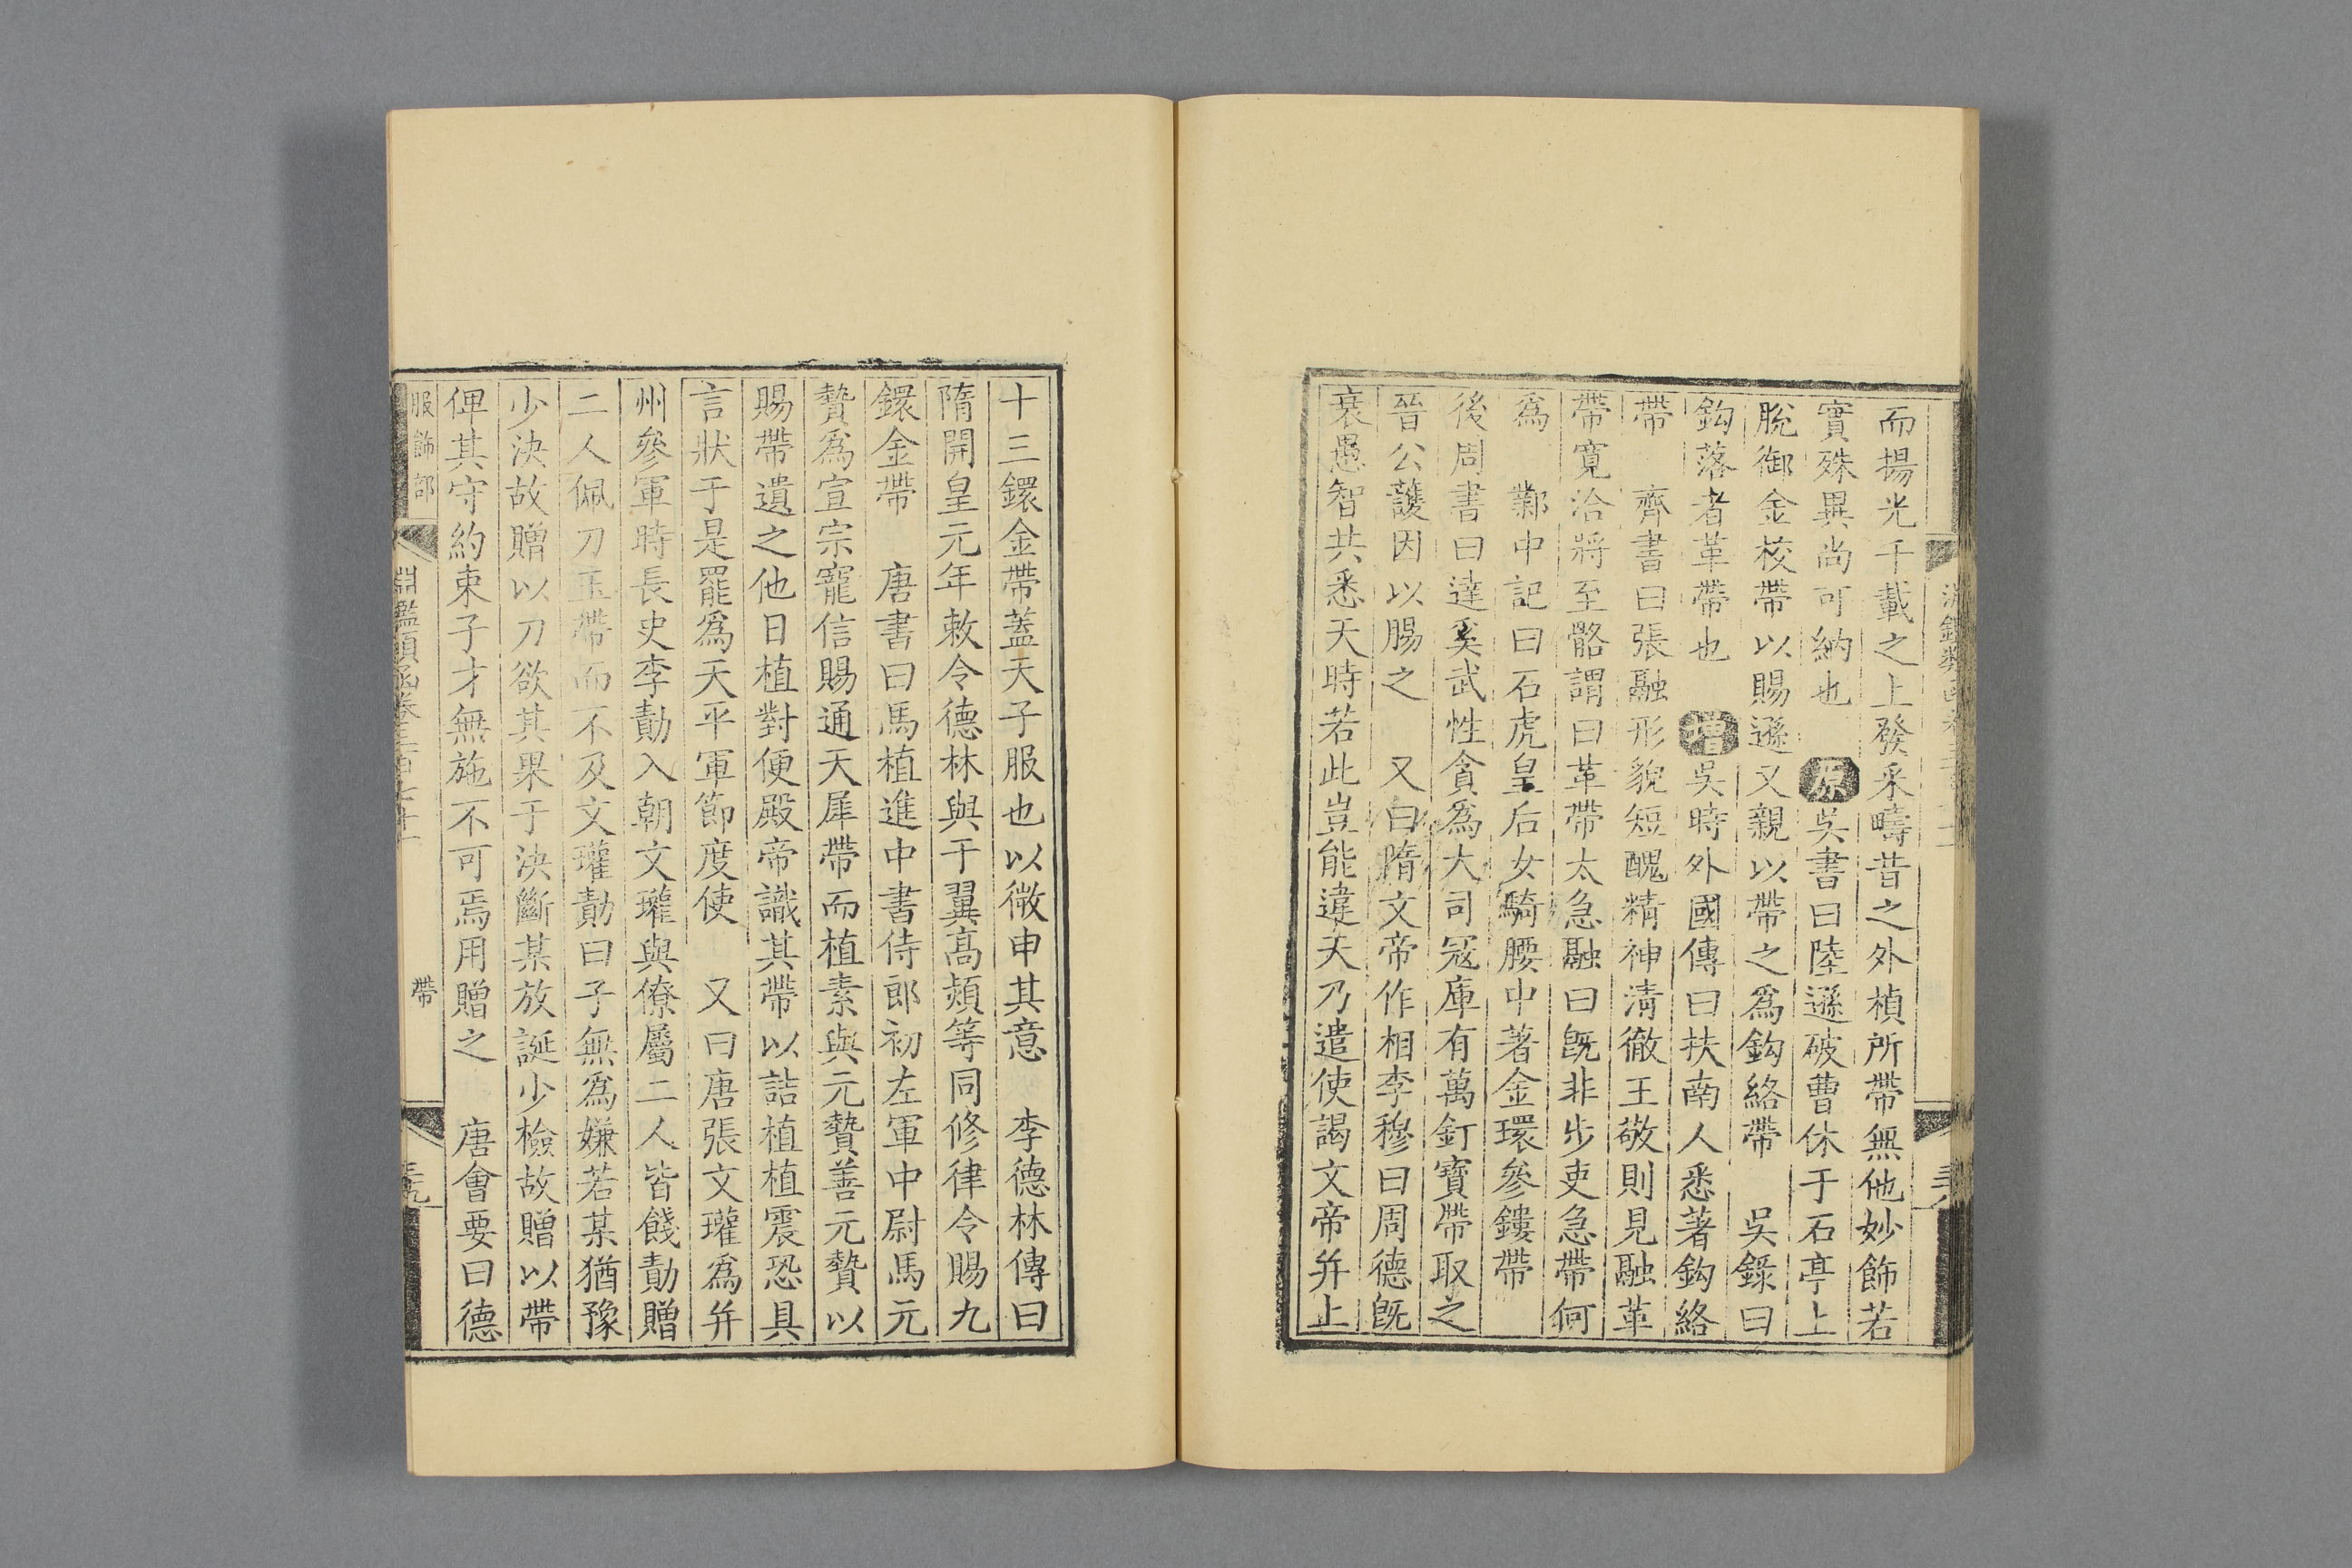 而揚光千載之上發采疇昔之外楨所帶無他妙飾若
實殊異尚可納也　原吳書曰陸遜破曹休于石亭上
脫御金校帶以賜遜又親以帶之爲鈎絡帶　吳錄曰
鈎落者革帶也　增吳時外國傳曰扶南人悉著鈎絡
帶　齊書曰張融形貌短醜精神淸徹王敬則見融革
帶寬洽將至骼謂曰革帶太急融曰旣非步吏急帶何
爲　鄴中記曰石虎皇后女騎腰中著金環參鏤帶
後周書曰達奚武性貪爲大司冦庫有萬釘寶帶取之
晉公護因以賜之　又曰隋文帝作相李穆曰周德旣
衰愚智共悉天時若此豈能違天乃遣使謁文帝并上
十三鐶金帶蓋天子服也以微申其意　李德林傳曰
隋開皇元年敕令德林與于翼高熲等同修律令賜九
鐶金帶　唐書曰馬植進中書侍郎初左軍中尉馬元
贄爲宣宗寵信賜通天犀帶而植素與元贄善元贄以
賜帶遺之他日植對便殿帝識其帶以詰植植震恐具
言狀于是罷爲天平軍節度使　又曰唐張文瓘爲并
州參軍時長史李勣入朝文瓘與僚屬二人皆餞勣贈
二人佩刀玉帶而不及文瓘勣曰子無爲嫌若某猶豫
少決故贈以刀欲其果于決斷某放誕少檢故贈以帶
俾其守約束子才無施不可焉用贈之　唐會要曰德
服飾部
淵鑑類函卷三百七十一
帶